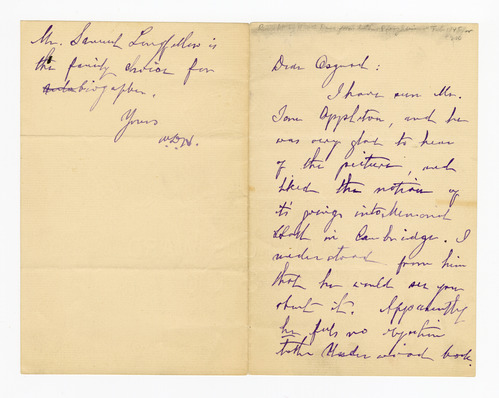 Dear Osgood:
I have seen Mr.
Tom Appleton, and he
was very glad to hear
of the picture, and
liked the notion of
it's going into Memorial
Hall in Cambridge. I
understood from him
that he would see you
about it. Apparently
he feels no objection
to the Underwood book.
Mr. Samuel Longfellow is
the family choice for
biographer.
Yours
W.D.H.